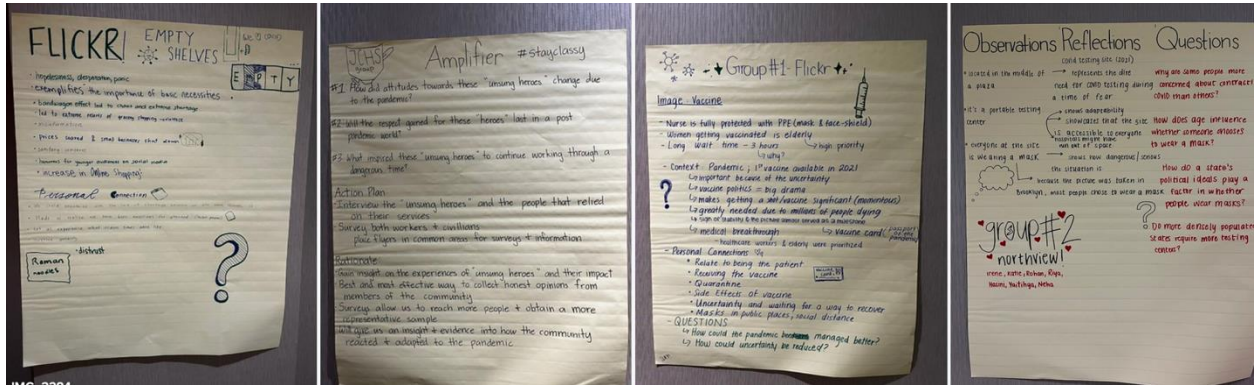 FLICKR!
EMPTY
SHELVES
E M P T Y
• hopelessness, desperation, panic
• exemplifies the importance of basic necessities
• bandwagon effect led to chaos and extreme shortage
• prices soared & small business shut down
• increase in Online Shopping
Personal Connection
• distrust
Roman
noodles
?
JCHS
group
Amplifier #stayclassy
#1. How did attitudes towards these "unsung heroes" change due
to the pandemic?
#2. Will the respect gained for these "heroes" last in a post
pandemic world?
#3. What inspired these "unsung heroes" to continue working through a
dangerous time?
Action Plan
Interview the "unsung heroes" and the people that relied
on their services
Survey both workers + civilians
place flyers in common areas for surveys + information
Rationale
Gain insight on the experiences of "unsung heroes" and their impact
Best and most effective way to collect honest opinions from
members of the community
Surveys allow us to reach more people + obtain a more
representative sample
Will give us an insight + evidence into how the community
reacted + adapted to the pandemic
Group #1- Flickr
Image: Vaccine
- Nurse is fully protected with PPE (mask & face-shield)
- Women getting vaccinated is elderly
- Long wait time - 3 hours
high priority
why?
- Context: Pandemic, 1st vaccine available in 2021
important because of the uncertainty
vaccine politics = big drama
makes getting a shot/vaccine significant (momentous)
greatly needed due to millions of people dying
medical breakthrough
vaccine card
healthcare workers & elderly were prioritized
- Personal Connections
• Relate to being the patient
• Receiving the vaccine
• Quarantine
• Side Effects of vaccine
• Uncertainty and waiting for a way to recover
• Masks in public places, social distance
- QUESTIONS
How could the pandemic managed better?
How could uncertainty be reduced?
?
Observations Reflections Questions
covid testing site (2021)
• located in the middle of
a plaza
• it's a portable testing
center
• everyone at the site
is wearing a mask
represents the dire
need for COVID testing during
a time of fear
shows adaptability
showcases that the site
is accessible to everyone
hospitals might have
run out of space
shows how dangerous/serious
the situation is
because the picture was taken in
Brooklyn, most people chose to wear a mask
why are some people more
concerned about contracting
COVID than others?
How does age influence
whether someone chooses
to wear a mask?
How do a state's
political ideals play a
factor in whether
people wear masks?
?
Do more densely populated
states require more testing
centers?
group #2
northview!
Irene, Katie, Rohan, Riya,
Neha